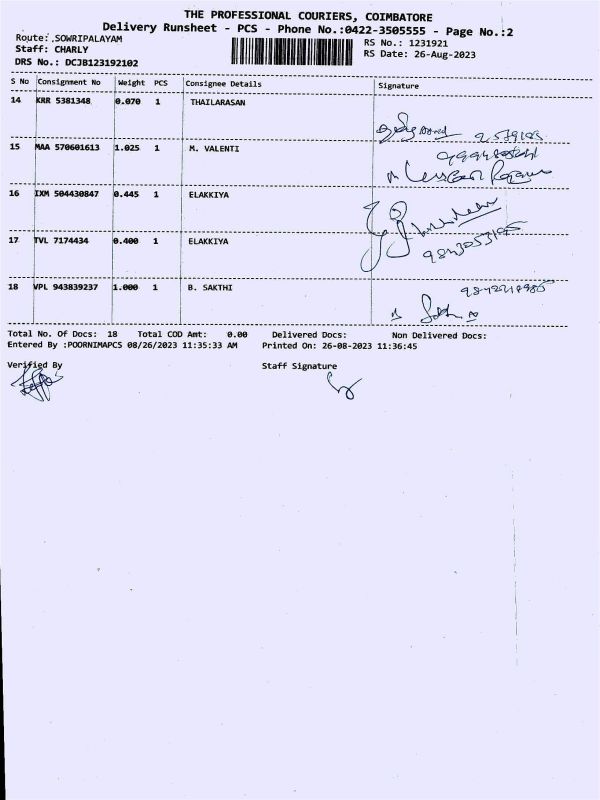 THE PROFESSIONAL COURIERS, COIMBATORE
Delivery Runsheet - PCS - Phone No.:0422-3505555 - Page No.:2
Route: SOWRIPALAYAM
RS No.: 1231921
Staff: CHARLY
RS Date: 26-Aug-2023
DRS No.: DCJB123192102
S No Consignment No Weight PCS Consignee Details Signature
14 KRR 5381348 0.070 1 THAILARASAN
15 MAA 570601613 1.025 1 M. VALENTI
16 IXM 504430847 0.445 1 ELAKKIYA
17 TVL 7174434 0.400 1 ELAKKIYA
9843053195
18 VPL 943839237 1.000 1 B. SAKTHI
Total No. Of Docs: 18 Total COD Amt: 0.00 Delivered Docs: Non Delivered Docs:
Entered By :POORNIMAPCS 08/26/2023 11:35:33 AM Printed On: 26-08-2023 11:36:45
Verified By Staff Signature